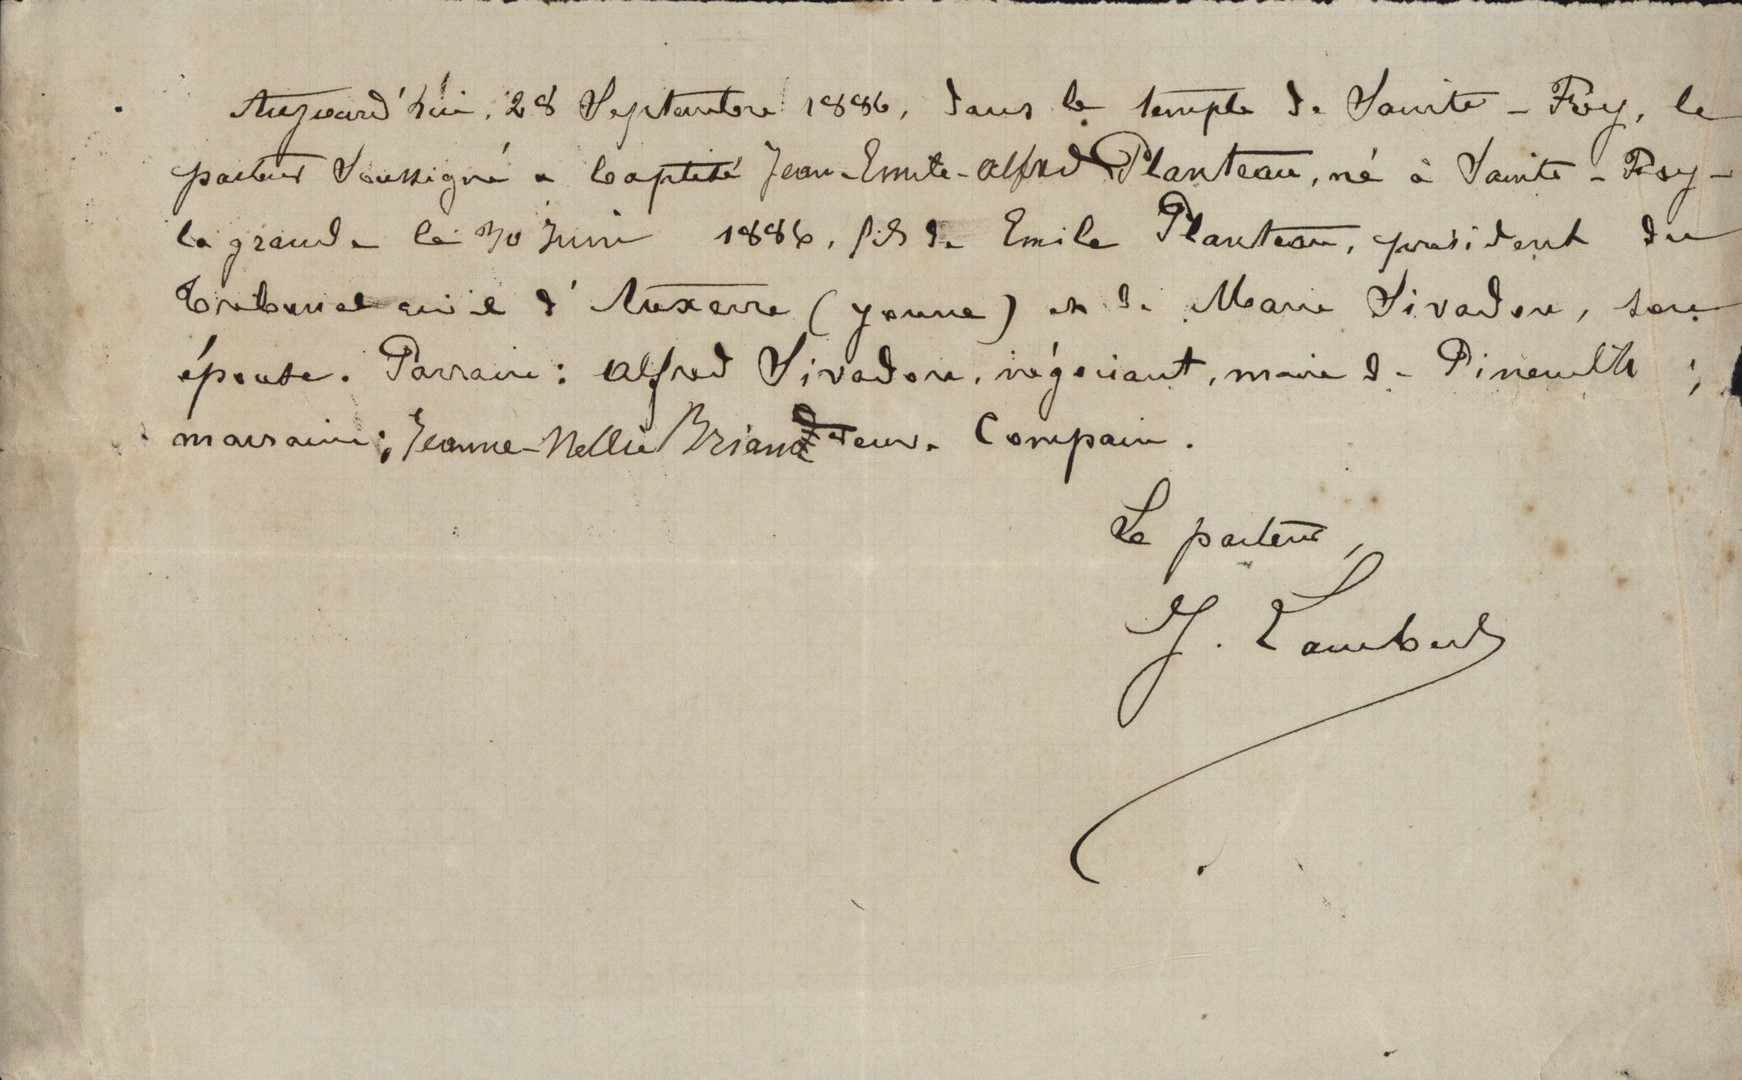 Aujourd'hui, 28 Septembre 1886, dans le temple de Sainte-Foy, le
pasteur soussigné a baptisé Jean-Emile-Alfred Planteau, né à Sainte-Foy-
la grande le 30 Juin 1886, fils de Emile Planteau, président du
Tribunal civil d'Auxerre (Yonne) et de Marie Sivadon, son
épouse. Parrain : Alfred Sivadon, négociant, maire de Pineuilh ;
marraine : Jeanne-Nellie Briand veuve Compain.
Le pasteur,
J. Lambert